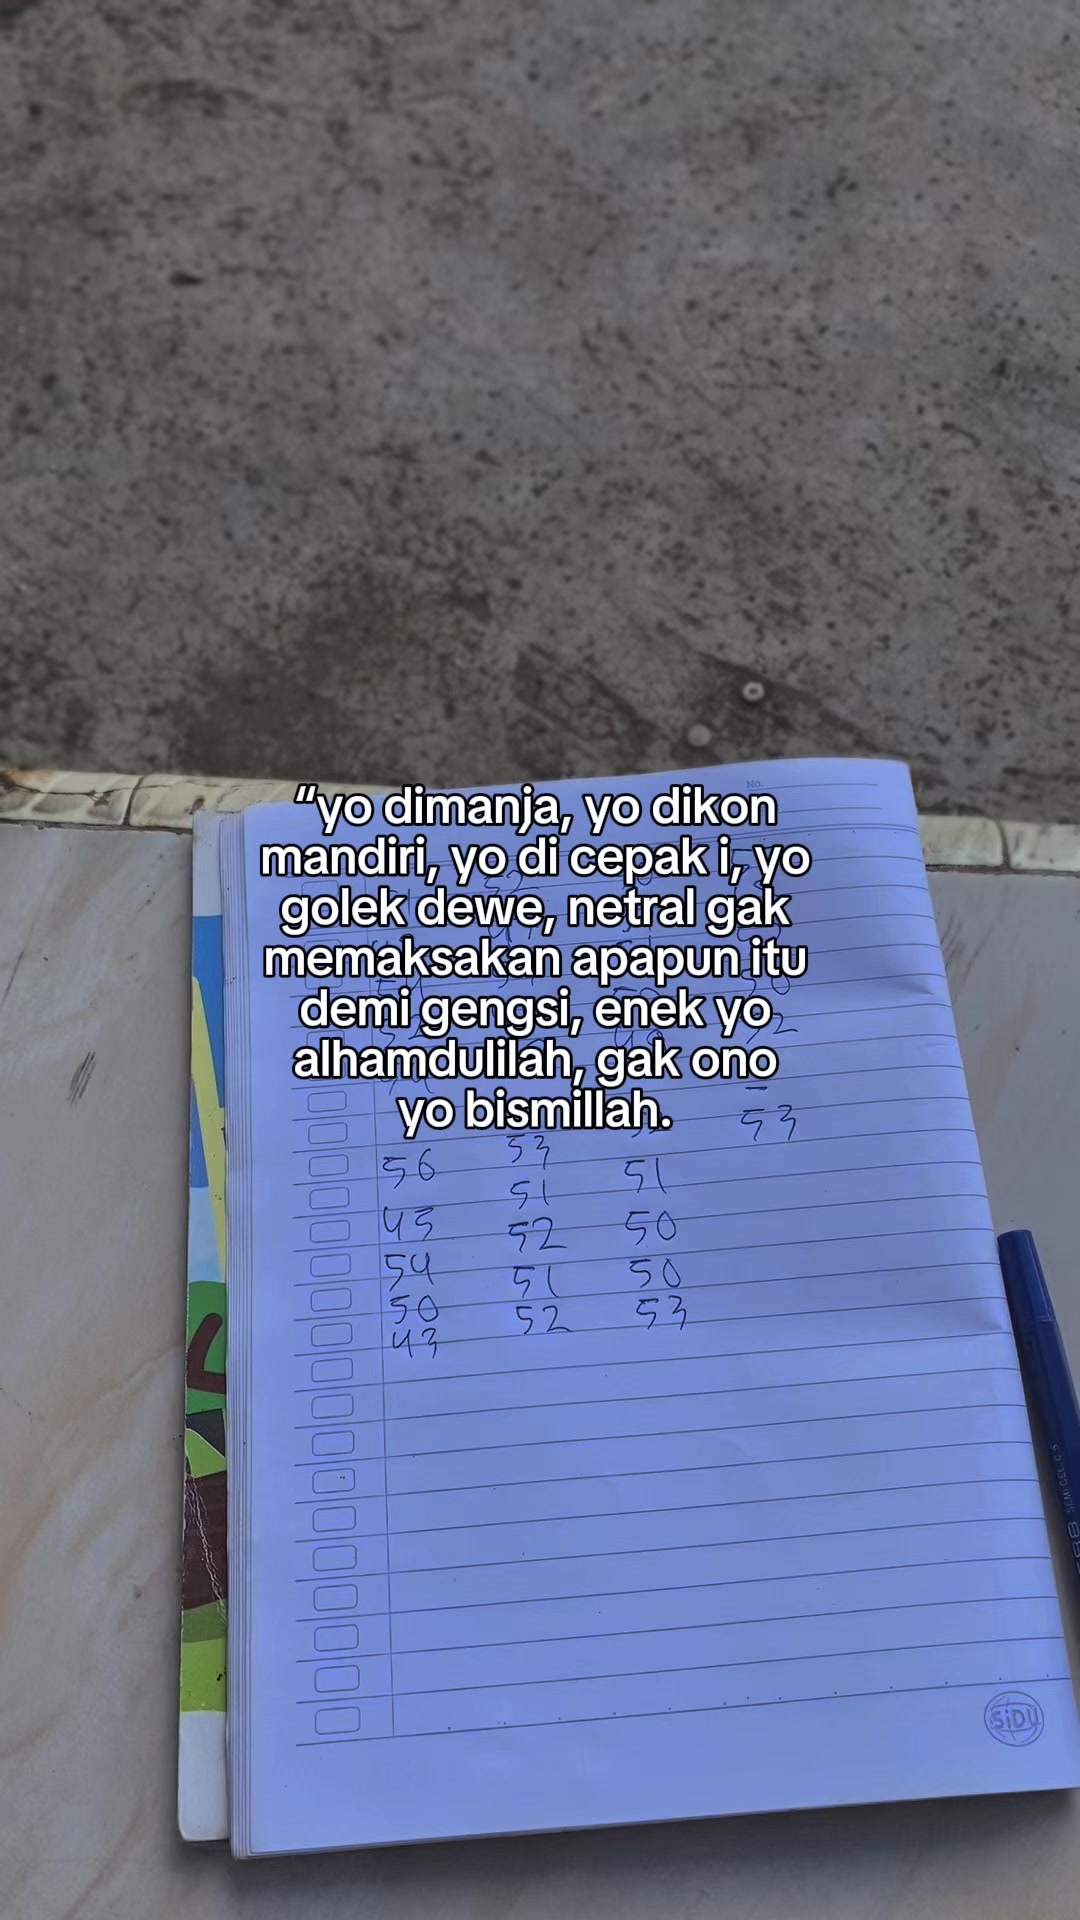 No.
“yo dimanja, yo dikon
mandiri, yo di cepak i, yo
golek dewe, netral gak
memaksakan apapun itu
demi gengsi, enek yo
alhamdulilah, gak ono
yo bismillah.
53
56 53
51 51
45 52 50
54 51 50
50 52 53
43
SEMI GEL 0.5
SiDU